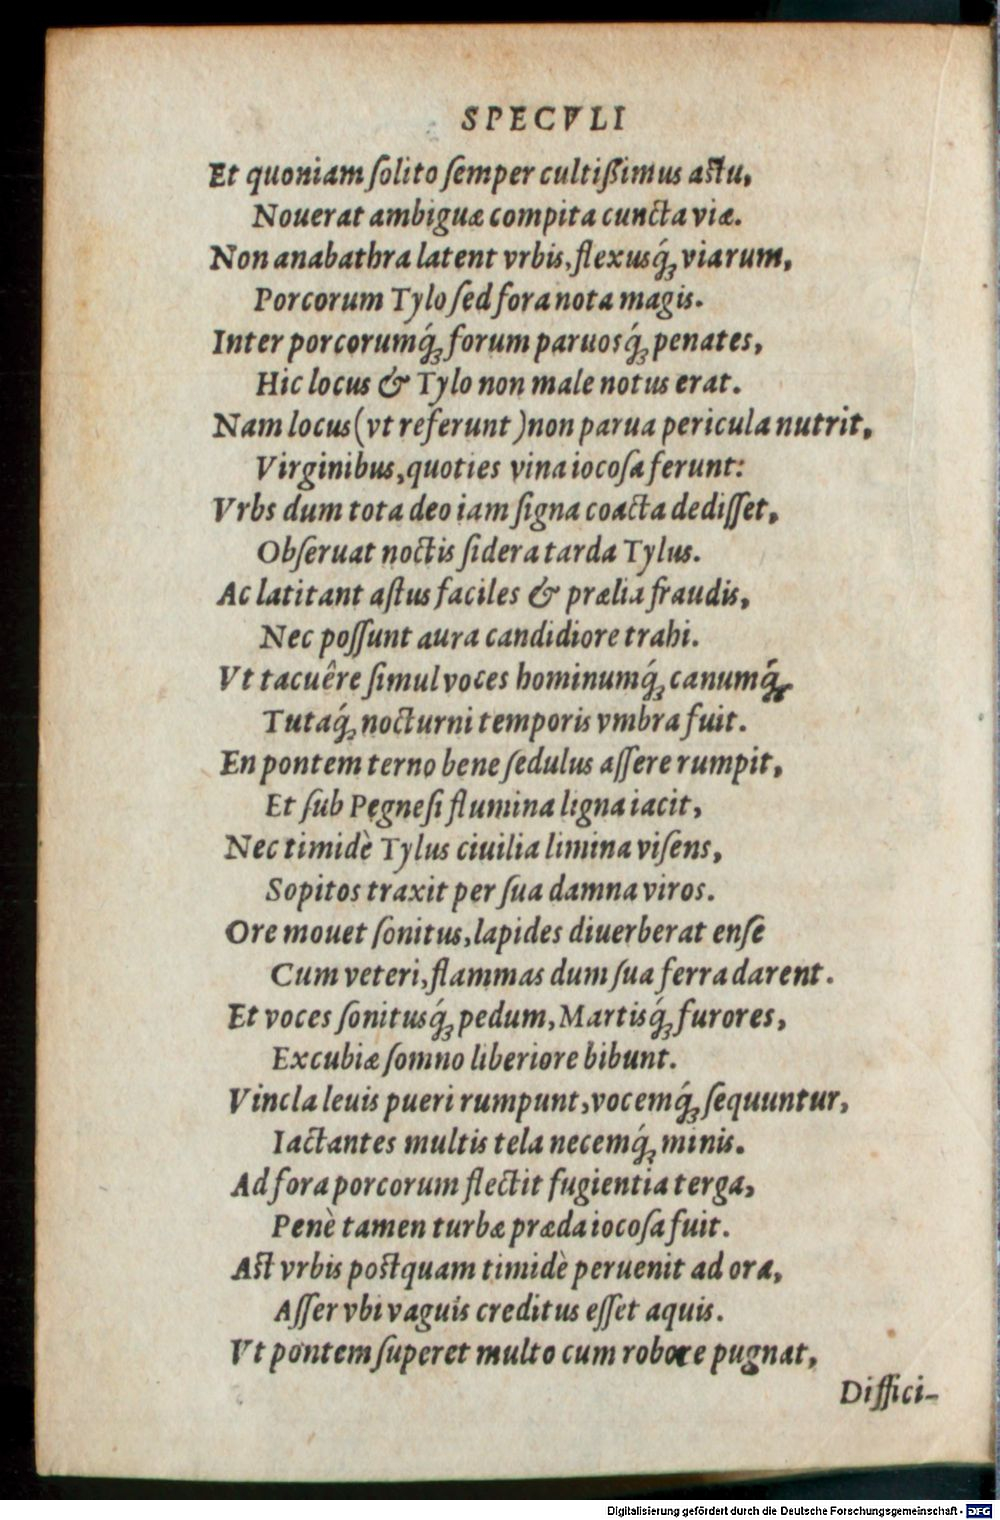 SPECVLI
Et quoniam ſolito ſemper cultiſsimus aſtu,
Nouerat ambiguæ compita cuncta viæ.
Non anabathra latent vrbis, flexusq́ꝫ viarum,
Porcorum Tylo ſed fora nota magis.
Inter porcorumq́ꝫ forum paruosq́ꝫ penates,
Hic locus & Tylo non male notus erat.
Nam locus (vt referunt) non parua pericula nutrit,
Virginibus, quoties vina iocoſa ferunt:
Vrbs dum tota deo iam ſigna coacta dediſſet,
Obſeruat noctis ſidera tarda Tylus.
Ac latitant aſtus faciles & prælia fraudis,
Nec poſſunt aura candidiore trahi.
Vt tacuêre ſimul voces hominumq́ꝫ canumq́ꝫ
Tutaq́ꝫ nocturni temporis vmbra fuit.
En pontem terno bene ſedulus aſſere rumpit,
Et ſub Pegneſi flumina ligna iacit,
Nec timidè Tylus ciuilia limina viſens,
Sopitos traxit per ſua damna viros.
Ore mouet ſonitus, lapides diuerberat enſe
Cum veteri, flammas dum ſua ferra darent.
Et voces ſonitusq́ꝫ pedum, Martisq́ꝫ furores,
Excubiæ ſomno liberiore bibunt.
Vincla leuis pueri rumpunt, vocemq́ꝫ ſequuntur,
Iactantes multis tela necemq́ꝫ minis.
Ad fora porcorum flectit fugientia terga,
Penè tamen turbæ præda iocoſa fuit.
Aſt vrbis poſtquam timidè peruenit ad ora,
Aſſer vbi vaguis creditus eſſet aquis.
Vt pontem ſuperet multo cum robore pugnat,
Diffici-
Digitalisierung gefördert durch die Deutsche Forschungsgemeinschaft - DFG